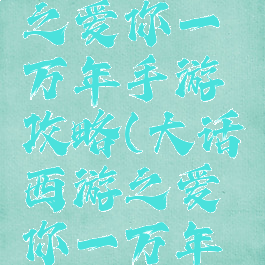 之爱你一
万年手游
攻略(大话
西游之爱
你一万年